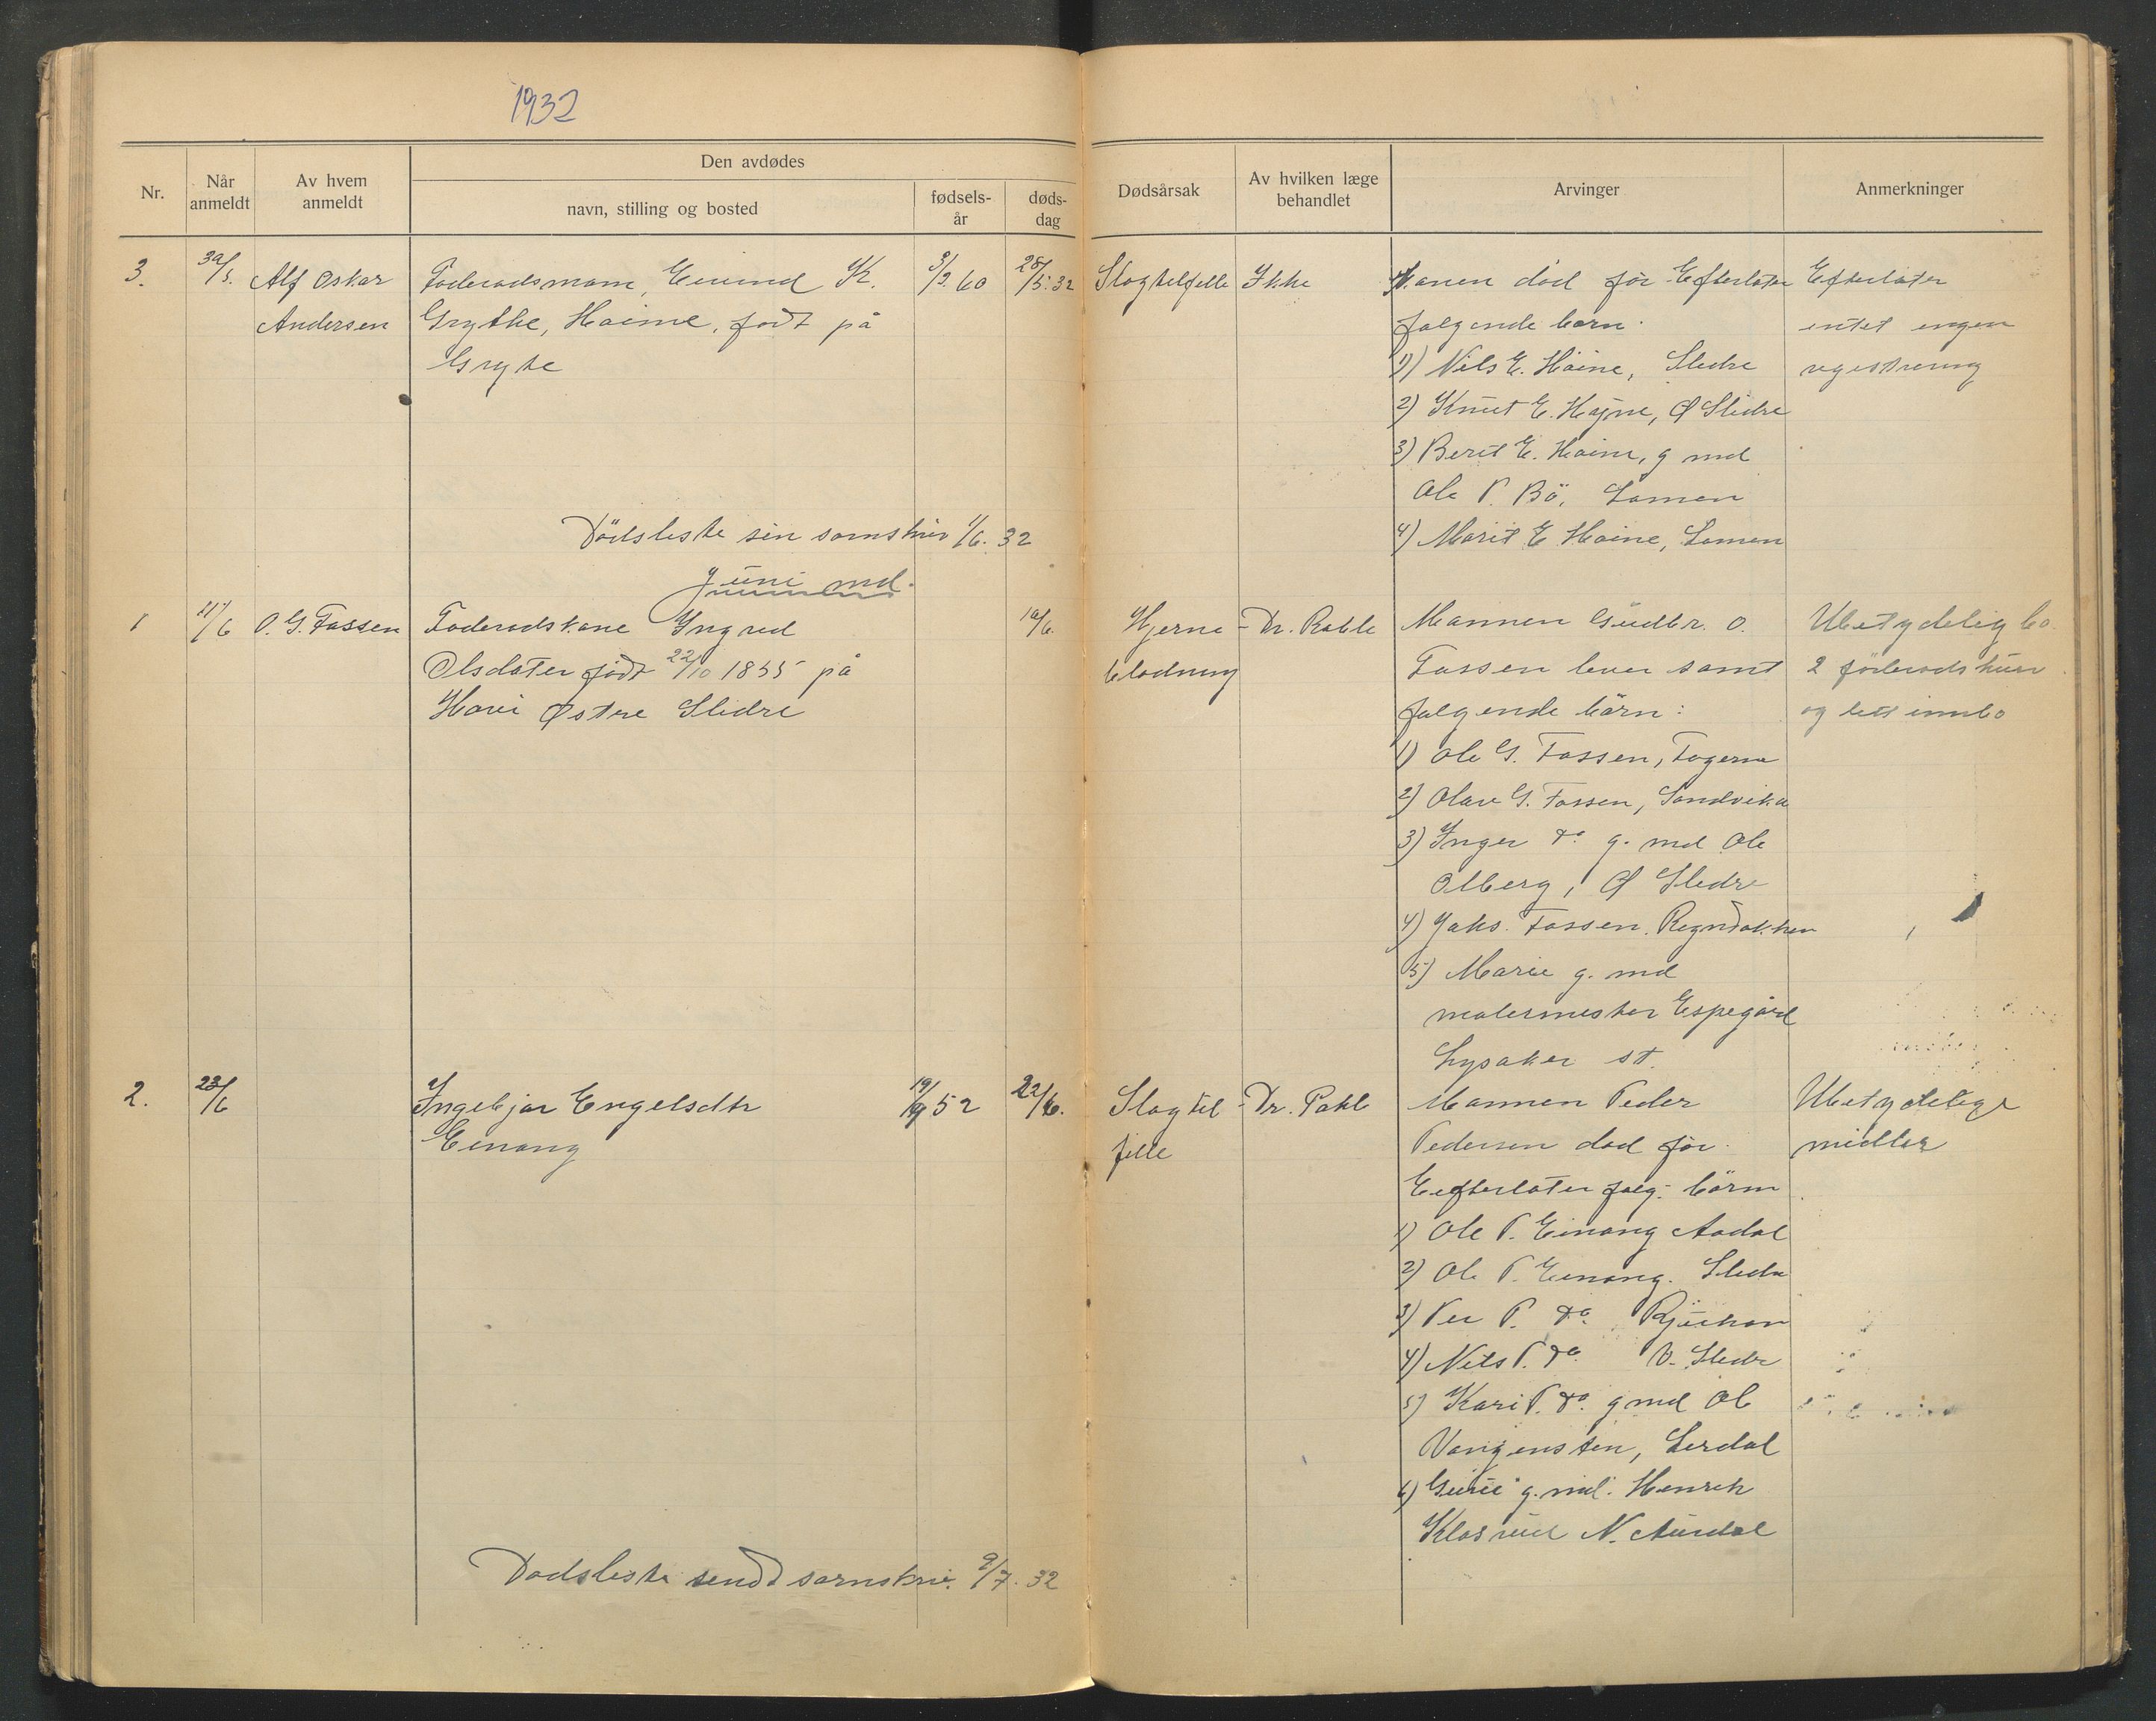 1932
Nr.
Når anmeldt
Av hvem anmeldt
Den avdødes
navn, stilling og bosted
fødsels-år
døds-dag
Dødsårsak
Av hvilken læge behandlet
Arvinger
Anmerkninger
3.
30/5.
Alf Oskar
Andersen
Foderadsmann, Eivind K.
Grythe, Høime, født på
Gryte
3/2 60
28/5. 32
Slagtilfelle
Ikke
Konen död för Efterlater
følgende børn.
1) Nils E. Höine, Slidre
2) Knut E. Højne, Ø Slidre
3) Berit E. Høine, g med
Ole P. Bö, Lomen
4) Marit E Høine, Lomen
Efterlater
intet ingen
registrering
Dödsliste sen sornskriv 1/6. 32
Juni md.
1
11/6
O. G. Fossen
Foderadskone Ingrid
Olsdater födt 22/10 1855 på
Hovi Østre Slidre
10/6.
Hjerne-
blødning
Dr. Pahle
Mannen Gudbr. O.
Fossen lever samt
følgende börn:
1) Ole G. Fossen, Fagernes
2) Olav G. Fossen, Sandvika
3) Inger do g. med Ole
Olberg, Ø Slidre
4) Jaks. Fossen.
5) Marie g. med
malermester Espegård
Lysaker st.
Ubetydelig bo.
2 föderadskuer
og litt innbo
2.
23/6
Ingebjør Engelsdtr
Einang
19/9 52
22/6.
Slagtil-
felle
Dr. Pahle
Mannen Peder
Pedersen død før.
Eefterlater følg. börn
1) Ole P. Einang Aadal
2) Ole P. Einang. Slidre
3) Per P. do. Rjukan
4) Nils P. do. V. Slidre
5) Kari P. do. g med Ole
Vangensten, Lerdal
6) Guri g. med. Henrik
Klosrud N. Aurdal
Ubetydelige
midler
Dødsliste sendt sornskriv. 9/7. 32